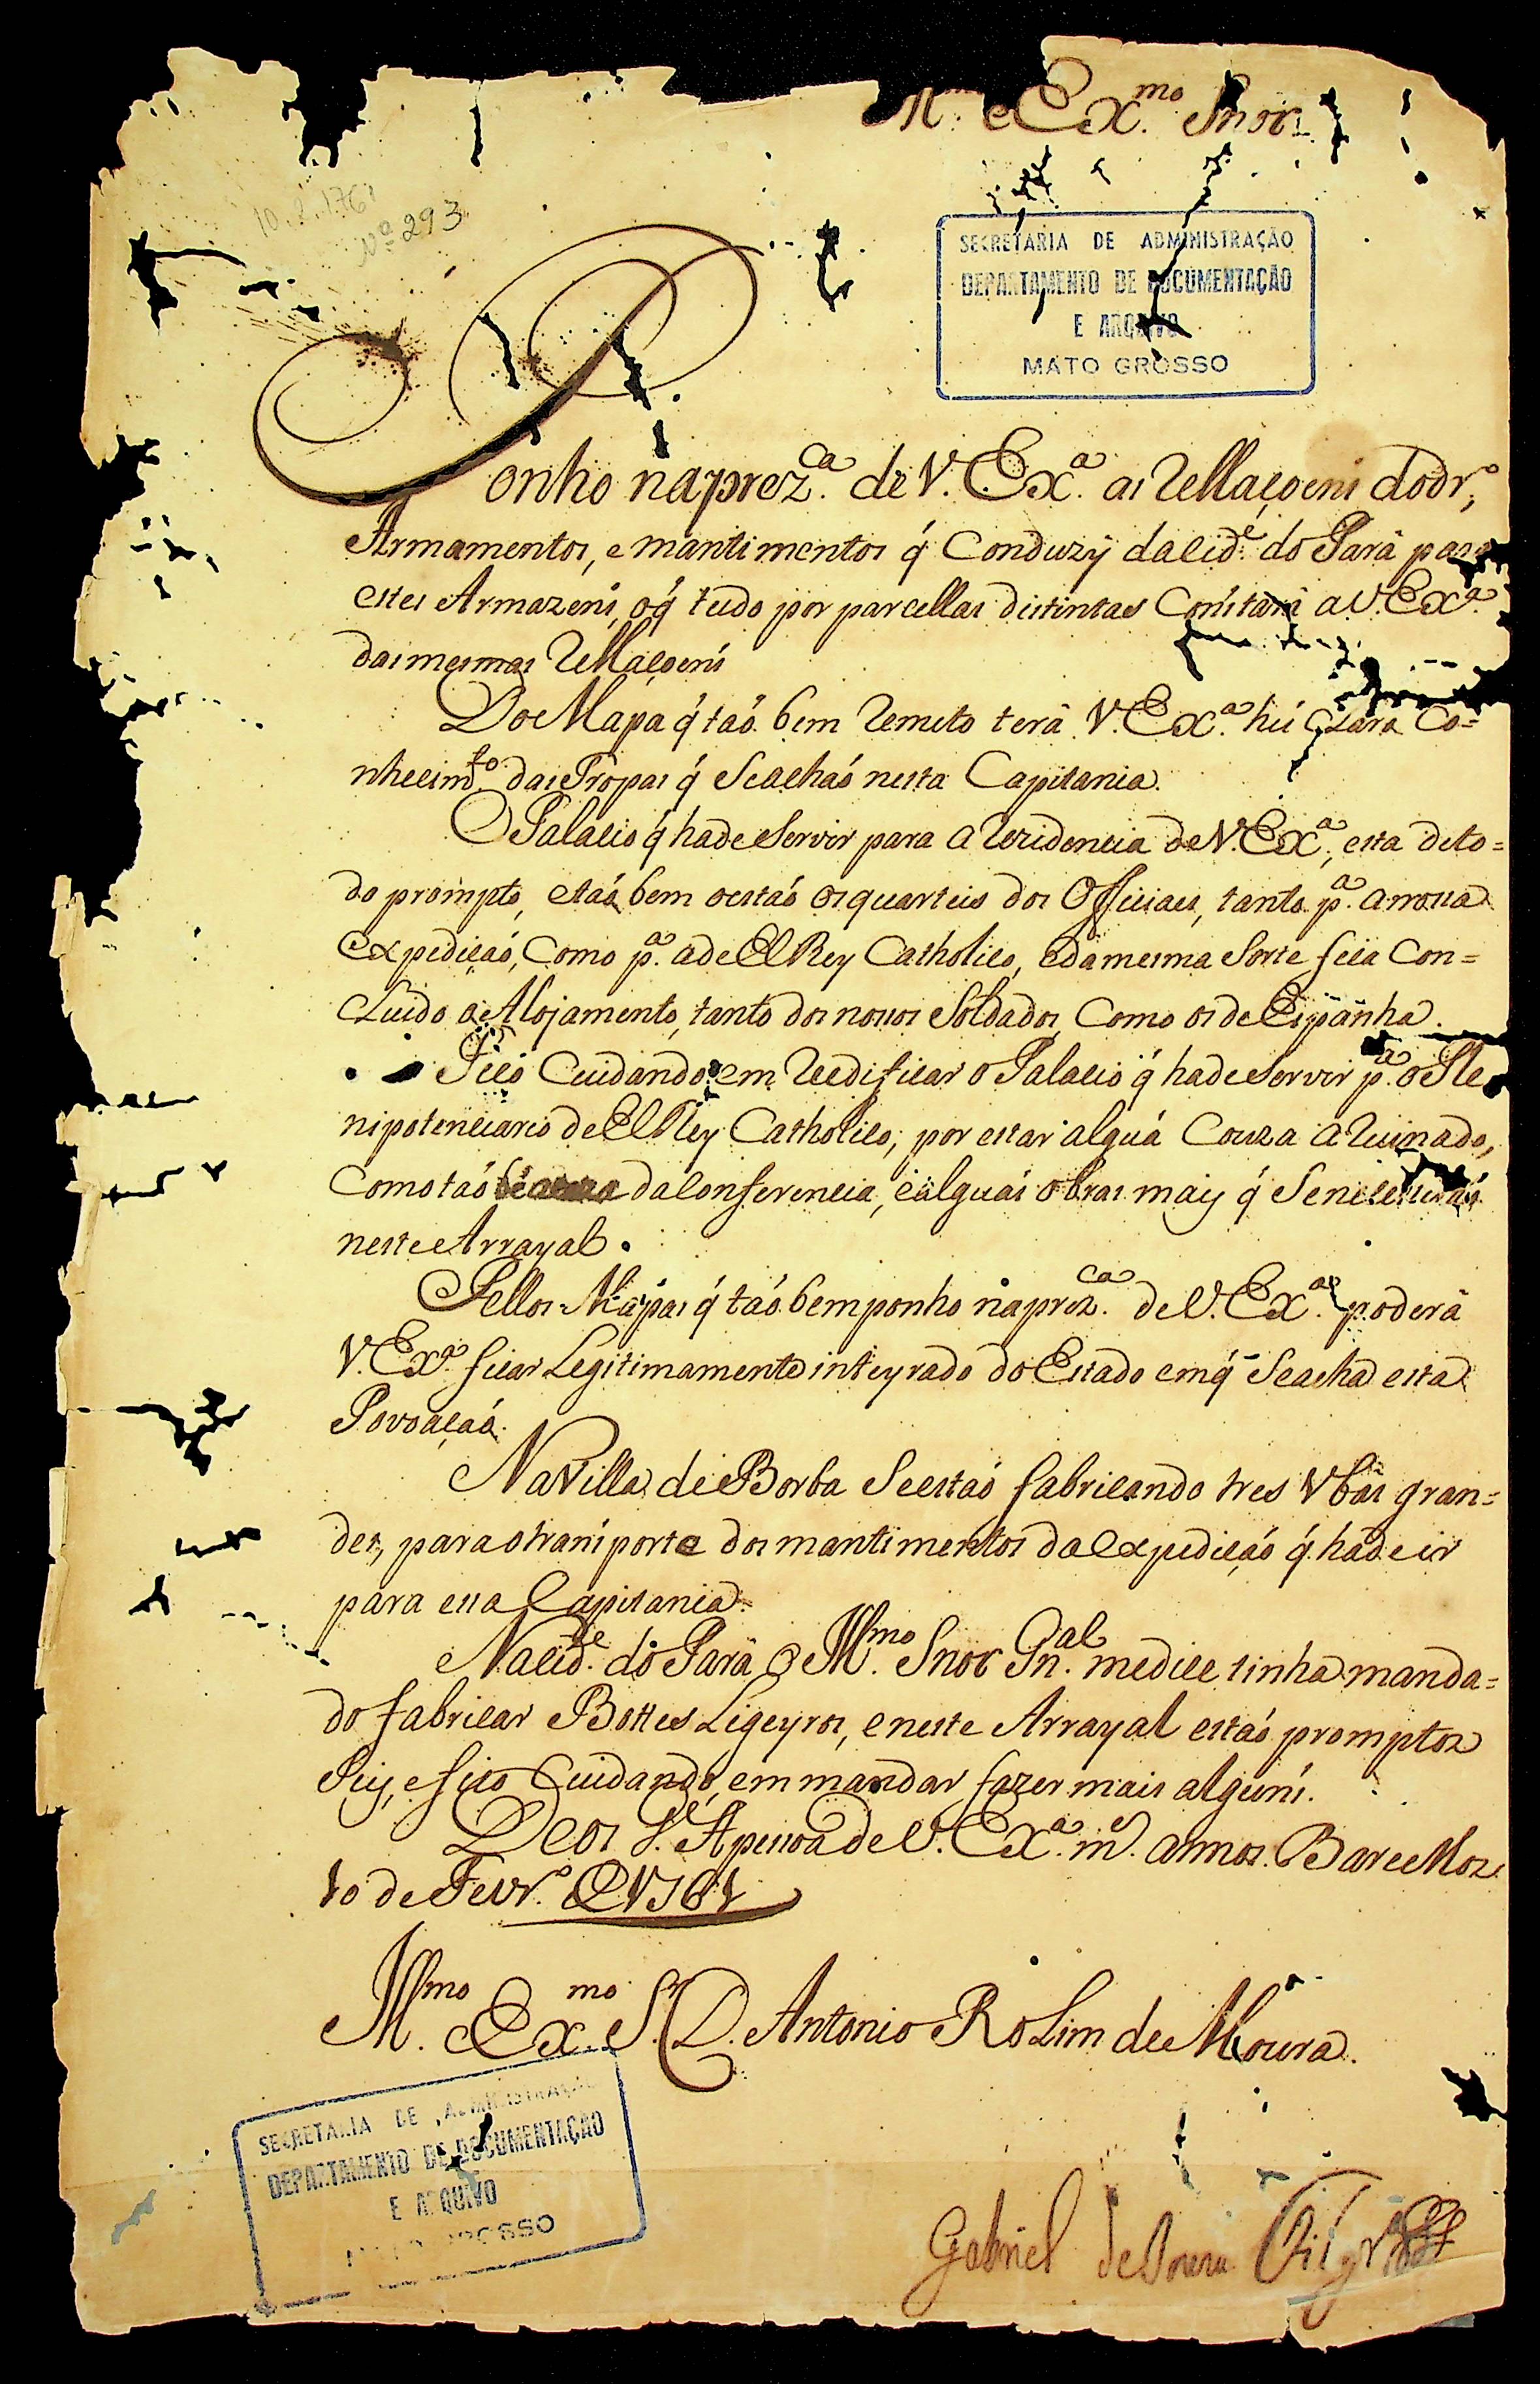 Ill.mo e Ex.mo Snor
10.2.1761
Nº 293
SECRETARIA DE ADMINISTRAÇÃO
DEPARTAMENTO DE DOCUMENTAÇÃO
E ARQUIVO
MATO GROSSO
Ponho na prez.ca de V. Ex.a as Rellaçoens dos
Armamentos, e mantimentos q́ Conduzÿ dacid.e do Parâ para
estes Armazens, oq́ tudo por parcellas distintas Constarâ aV. Ex.a
das mesmas Rellaçoens
Do Mapa q́ taó bem Remeto terâ V. Ex.a hú Claro Co=
nhecim.to das Tropas q́ Seachaó nesta Capitania.
O Palacio q́ hade Servir para a Rezidencia de V. Ex.a, esta deto=
do prompto, etaó bem oestaó os quarteis dos Officiaes, tanto p.a a nossa
expediçaó, Como p.a ade El Rey Catholico, edamesma Sorte fica Con=
Cluido o Alojamento, tanto dos nossos Soldados, Como os de Espanha.
Fico Cuidando em Reedificar o Palacio q́ hade Servir p.a o Ple
nipotenciario de El Rey Catholico, por estar alguá Couza aRuinado,
Como taó daConferencia, ealguás obras mais q́ Se
neste Arrayal.
Pellos Mapas q́ taó bem ponho naprez.ca de V. Ex.a poderâ
V. Ex.a ficar Legitimamente inteyrado do Estado emq́ Seacha esta
Povoaçaó.
Na Villa de Borba Seestaó fabricando tres Vbás gran=
des, para otransporte dos mantimentos da expediçaó q́ hade ir
para essa Capitania.
Nacid.e do Parâ o Ill.mo Snor Gn.al medice tinha manda=
do fabricar Bottes Ligeyros, eneste Arrayal estaó promptos
Seis, efico Cuidando, emmandar fazer mais alguns.
Deos g.e Apessoa de V. Ex.a m.s annos. Barcellos
10 de Fevr.o de 1761
Ill.mo e Ex.mo S.r D. Antonio Rolim de Moura.
SECRETARIA DE ADMINISTRAÇÃO
DEPARTAMENTO DE DOCUMENTAÇÃO
E ARQUIVO
MATO GROSSO
Gabriel de Souza Filgr.as